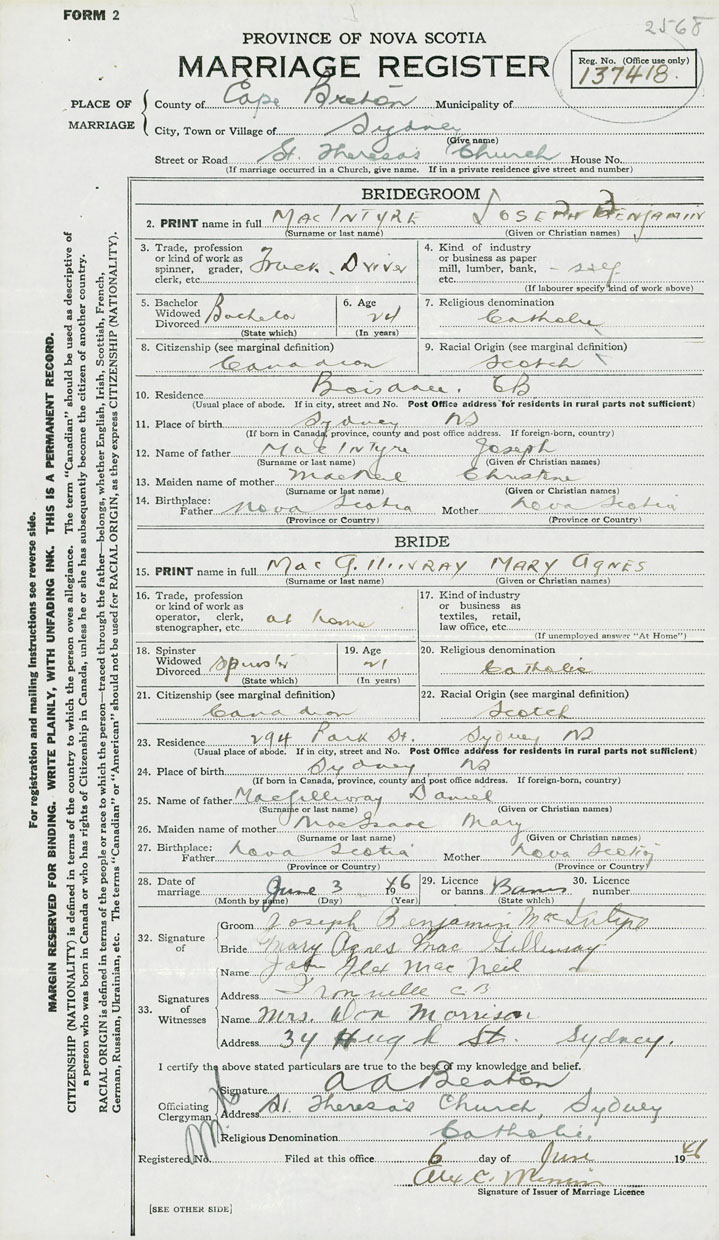 FORM 2
2568
PROVINCE OF NOVA SCOTIA
MARRIAGE REGISTER
Reg. No. (Office use only)
137418.
PLACE OF MARRIAGE
County of Cape Breton Municipality of
City, Town or Village of Sydney
(Give name)
Street or Road St. Theresa's Church House No.
(If marriage occurred in a Church, give name. If in a private residence give street and number)
BRIDEGROOM
2. PRINT name in full MacINTYRE JOSEPH BENJAMIN
(Surname or last name) (Given or Christian names)
3. Trade, profession or kind of work as spinner, grader, clerk, etc. Truck Driver
4. Kind of industry or business as paper mill, lumber, bank, etc. - self
(If labourer specify kind of work above)
5. Bachelor Widowed Divorced Bachelor
(State which)
6. Age 24
(In years)
7. Religious denomination
Catholic
8. Citizenship (see marginal definition)
Canadian
9. Racial Origin (see marginal definition)
Scotch
10. Residence Boisdale. CB
(Usual place of abode. If in city, street and No. Post Office address for residents in rural parts not sufficient)
11. Place of birth Sydney NS
(If born in Canada, province, county and post office address. If foreign-born, country)
12. Name of father MacIntyre Joseph
(Surname or last name) (Given or Christian names)
13. Maiden name of mother MacNeil Christine
(Surname or last name) (Given or Christian names)
14. Birthplace:
Father Nova Scotia Mother Nova Scotia
(Province or Country) (Province or Country)
BRIDE
15. PRINT name in full MacGILLIVRAY MARY AGNES
(Surname or last name) (Given or Christian names)
16. Trade, profession or kind of work as operator, clerk, stenographer, etc. at home
17. Kind of industry or business as textiles, retail, law office, etc.
(If unemployed answer "At Home")
18. Spinster Widowed Divorced Spinster
(State which)
19. Age 21
(In years)
20. Religious denomination
Catholic
21. Citizenship (see marginal definition)
Canadian
22. Racial Origin (see marginal definition)
Scotch
23. Residence 294 Park St. Sydney NS
(Usual place of abode. If in city, street and No. Post Office address for residents in rural parts not sufficient)
24. Place of birth Sydney NS
(If born in Canada, province, county and post office address. If foreign-born, country)
25. Name of father MacGillivray Daniel
(Surname or last name) (Given or Christian names)
26. Maiden name of mother MacIsaac Mary
(Surname or last name) (Given or Christian names)
27. Birthplace:
Father Nova Scotia Mother Nova Scotia
(Province or Country) (Province or Country)
28. Date of marriage June 3 1946
(Month by name) (Day) (Year)
29. Licence or banns Banns
(State which)
30. Licence number
32. Signature of
Groom Joseph Benjamin MacIntyre
Bride Mary Agnes MacGillivray
33. Signatures of Witnesses
Name John Alex MacNeil
Address Ironville C B
Name Mrs. Don Morrison
Address 34 Hugh St. Sydney.
I certify the above stated particulars are true to the best of my knowledge and belief.
Officiating Clergyman
Signature A A Beaton
Address St. Theresa's Church, Sydney
Religious Denomination Catholic.
Registered No. Filed at this office 6 day of June 1946
Alex C.
Signature of Issuer of Marriage Licence
[SEE OTHER SIDE]
For registration and mailing instructions see reverse side.
MARGIN RESERVED FOR BINDING. WRITE PLAINLY, WITH UNFADING INK. THIS IS A PERMANENT RECORD.
CITIZENSHIP (NATIONALITY) is defined in terms of the country to which the person owes allegiance. The term "Canadian" should be used as descriptive of
a person who was born in Canada or who has rights of Citizenship in Canada, unless he or she has subsequently become the citizen of another country.
RACIAL ORIGIN is defined in terms of the people or race to which the person—traced through the father—belongs, whether English, Irish, Scottish, French,
German, Russian, Ukrainian, etc. The terms "Canadian" or "American" should not be used for RACIAL ORIGIN, as they express CITIZENSHIP (NATIONALITY).